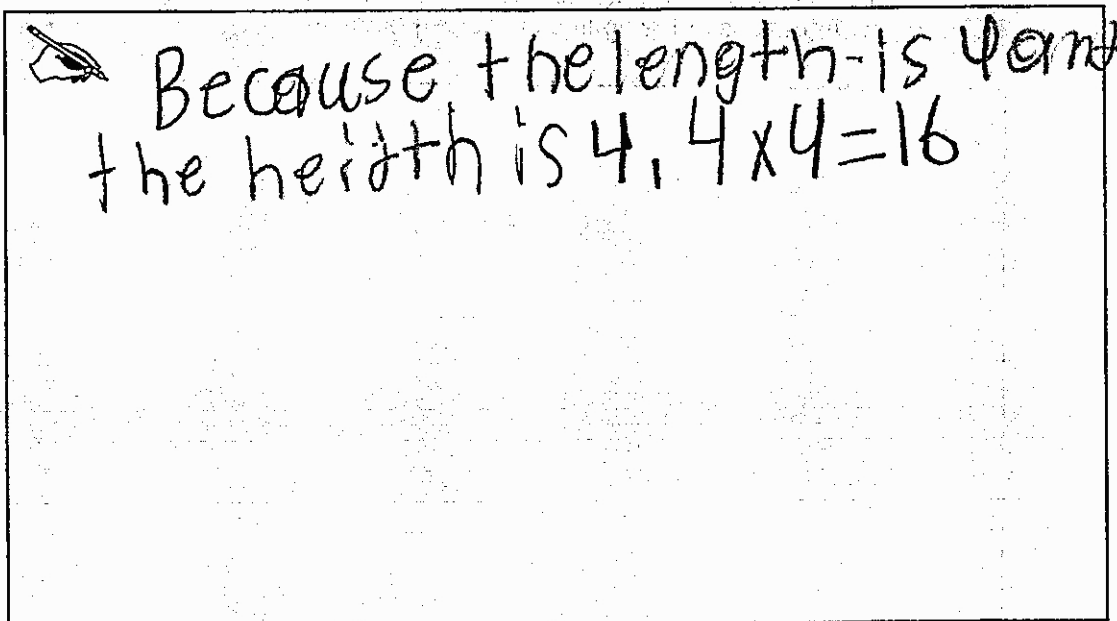 Because the length is 4 and
the heidth is 4, 4x4=16